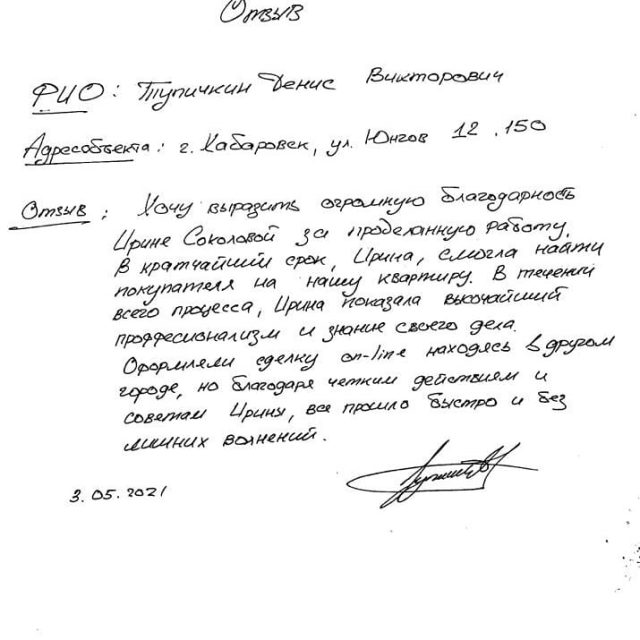 Отзыв
ФИО: Тупичкин Денис Викторович
Адрес объекта: г. Хабаровск, ул. Юнгов 12.150
Отзыв: Хочу выразить огромную благодарность
Ирине Соколовой за проделанную работу.
В кратчайший срок, Ирина, смогла найти
покупателя на нашу квартиру. В течении
всего процесса, Ирина показала высочайший
проффесионализм и знание своего дела.
Оформляли сделку on-line находясь в другом
городе, но благодаря четким действиям и
советам Ирины, все прошло быстро и без
лишних волнений.
3.05.2021